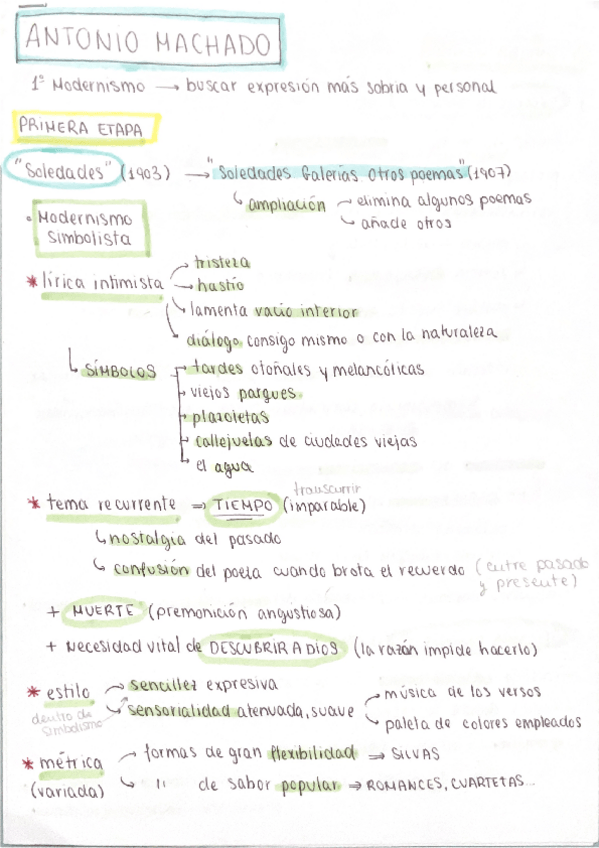 ANTONIO MACHADO
1º Modernismo → buscar expresión más sobria y personal
PRIMERA ETAPA
"Soledades" (1903) → "Soledades Galerías Otros poemas" (1907)
↳ ampliación → elimina algunos poemas
↳ añade otros
• Modernismo
Simbolista
* lírica intimista → tristeza
→ hastío
→ lamenta vacío interior
diálogo consigo mismo o con la naturaleza
↳ SÍMBOLOS → tardes otoñales y melancólicas
→ viejos parques
→ plazoletas
→ callejuelas de ciudades viejas
→ el agua
transcurrir
* tema recurrente ⇒ TIEMPO (imparable)
↳ nostalgia del pasado
↳ confusión del poeta cuando brota el recuerdo (entre pasado
y presente)
+ MUERTE (premonición angustiosa)
+ Necesidad vital de DESCUBRIR A DIOS (la razón impide hacerlo)
* estilo → sencillez expresiva
→ sensorialidad atenuada, suave → música de los versos
↳ paleta de colores empleados
dentro de
simbolismo
* métrica → formas de gran flexibilidad ⇒ SILVAS
(variada) ↳ " de sabor popular ⇒ ROMANCES, CUARTETAS...